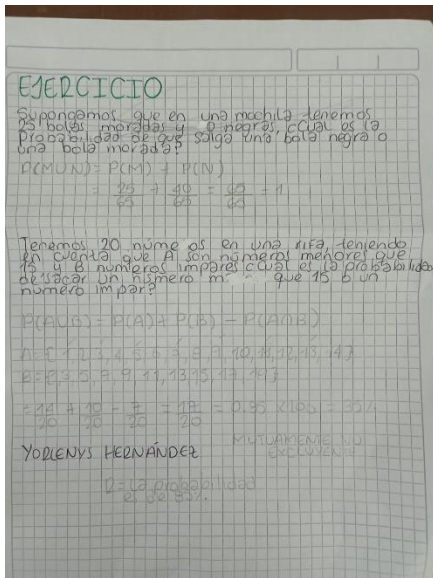 EJERCICIO
Supongamos que en una mochila tenemos
25 bolas moradas y 40 negras, ¿cual es la
probabilidad de que salga una bola negra o
una bola morada?
P(MUN) = P(M) + P(N)
= 25/65 + 40/65 = 65/65 = 1
Tenemos 20 números en una rifa, teniendo
en cuenta que A son números menores que
15 y B números impares ¿cual es la probabilidad
de sacar un número que 15 o un
número impar?
P(AUB) = P(A) + P(B) - P(A∩B)
A = { 1, 2, 3, 4, 5, 6, 7, 8, 9, 10, 11, 12, 13, 14 }
3, 5, 7, 9, 11, 13, 15, 17, 19 }
= 14/20 + 10/20 - 7/20 = 17/20 =
MUTUAMENTE NO
YORLENYS HERNÁNDEZ EXCLUYENTE
R= La probabilidad
es de